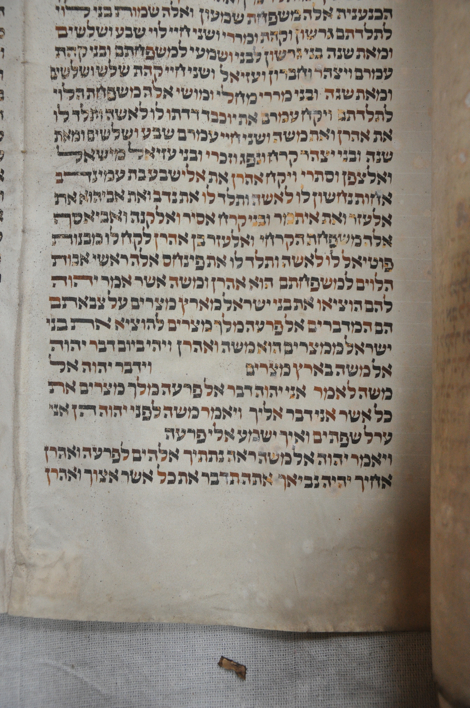 הכנענית אלה משפחת שמעון ואלה שמות בני לוי
לתלדתם גרשון וקהת ומררי ושני חיי לוי שבע ושלשים
ומאת שנה בני גרשון לבני ושמעי למשפחתם ובני קהת
עמרם ויצהר וחברון ועזיאל ושני חיי קהת שלש ושלשים
ומאת שנה ובני מררי מחלי ומושי אלה משפחת הלוי
לתלדתם ויקח עמרם את יוכבד דדתו לו לאשה ותלד לו
את אהרן ואת משה ושני חיי עמרם שבע ושלשים ומאת
שנה ובני יצהר קרח ונפג וזכרי ובני עזיאל מישאל
ואלצפן וסתרי ויקח אהרן את אלישבע בת עמינדב
אחות נחשון לו לאשה ותלד לו את נדב ואת אביהוא את
אלעזר ואת איתמר ובני קרח אסיר ואלקנה ואביאסף
אלה משפחת הקרחי ואלעזר בן אהרן לקח לו מבנות
פוטיאל לו לאשה ותלד לו את פינחס אלה ראשי אבות
הלוים למשפחתם הוא אהרן ומשה אשר אמר יהוה
להם הוציאו את בני ישראל מארץ מצרים על צבאתם
הם המדברים אל פרעה מלך מצרים להוציא את בני
ישראל ממצרים הוא משה ואהרן ויהי ביום דבר יהוה
אל משה בארץ מצרים וידבר יהוה אל
משה לאמר אני יהוה דבר אל פרעה מלך מצרים את
כל אשר אני דבר אליך ויאמר משה לפני יהוה הן אני
ערל שפתים ואיך ישמע אלי פרעה
ויאמר יהוה אל משה ראה נתתיך אלהים לפרעה ואהרן
אחיך יהיה נביאך אתה תדבר את כל אשר אצוך ואהרן